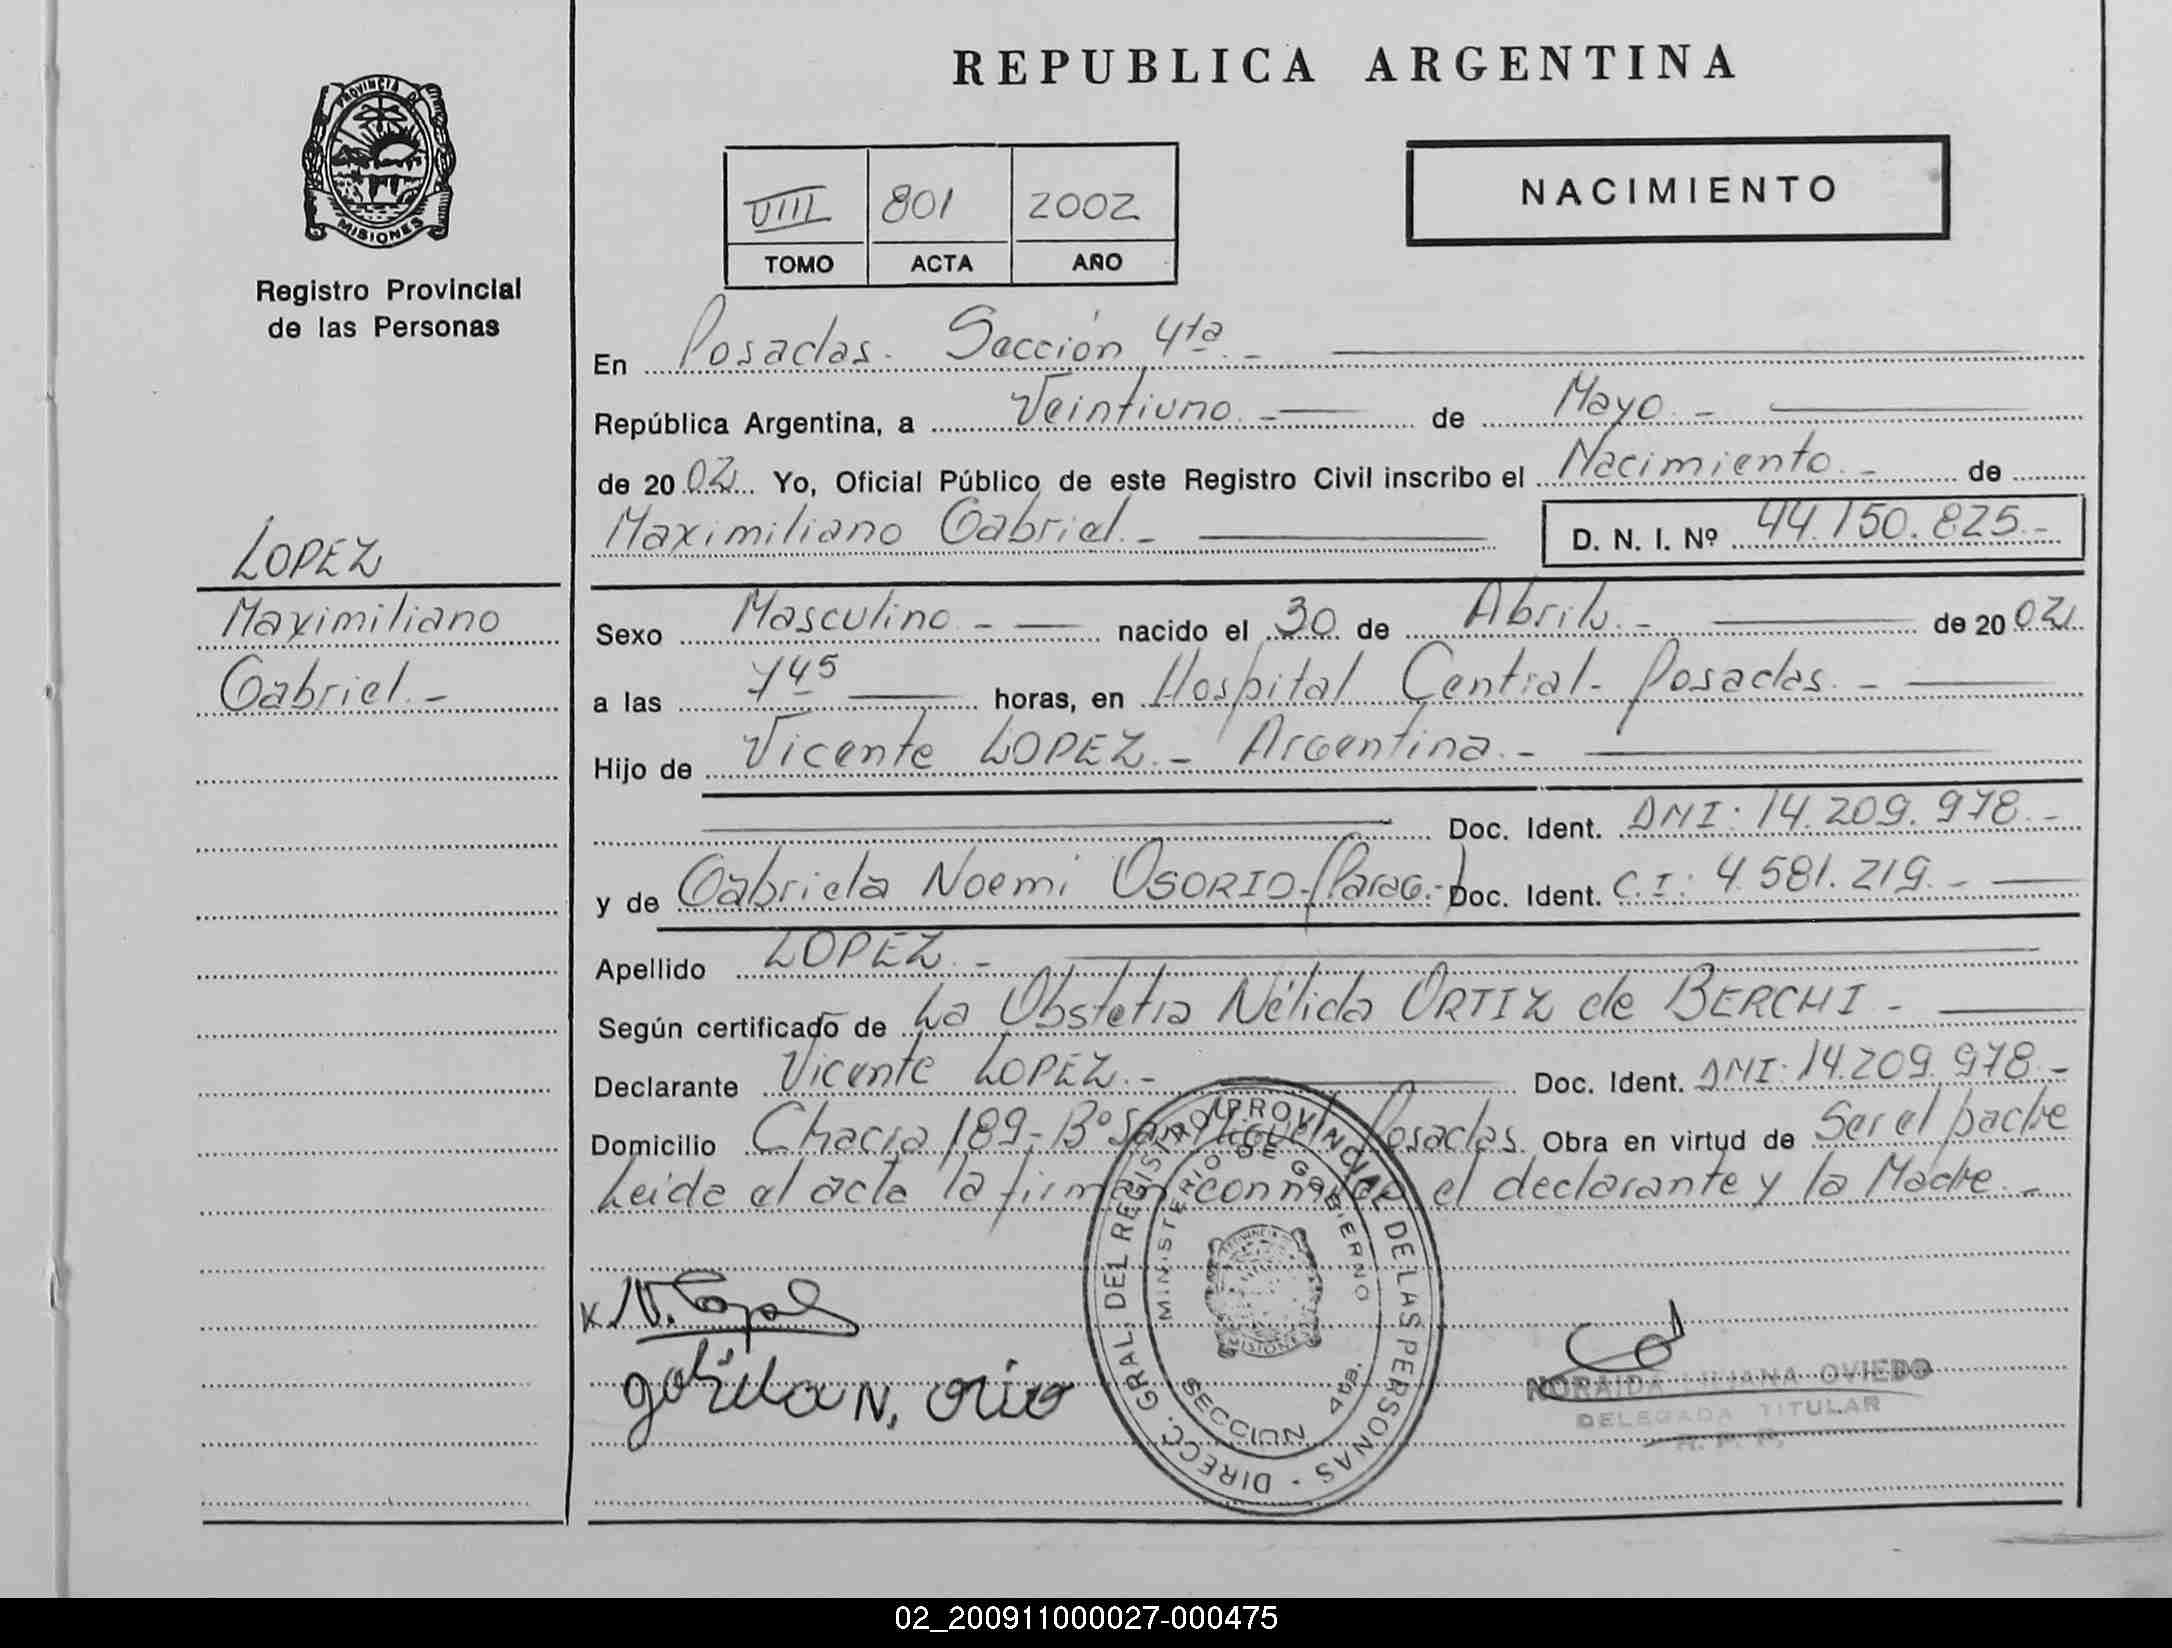 REPUBLICA ARGENTINA
PROVINCIA DE
MISIONES
Registro Provincial
de las Personas
VIII 801 2002
TOMO ACTA AÑO
NACIMIENTO
En Posadas. Sección 4ta. -
República Argentina, a Veintiuno. - de Mayo. -
de 2002 Yo, Oficial Público de este Registro Civil inscribo el Nacimiento. - de
Maximiliano Gabriel. - D. N. I. Nº 44.150.825.-
LOPEZ
Maximiliano
Gabriel. -
Sexo Masculino. - nacido el 30 de Abril. - de 2002
a las 745 horas, en Hospital Central- Posadas. -
Hijo de Vicente LOPEZ. - Argentina. -
Doc. Ident. DNI: 14.209.978. -
y de Gabriela Noemi OSORIO-(Parag.-) Doc. Ident. C.I: 4.581.219. -
Apellido LOPEZ. -
Según certificado de La Obstetra Nélida ORTIZ de BERCHI -
Declarante Vicente LOPEZ. - Doc. Ident. DNI: 14.209.978.-
Domicilio Chacra 189- Bº San Miguel Posadas. Obra en virtud de Ser el padre
Leida el acta la firman conmigo el declarante y la Madre. -
DIRECC. GRAL. DEL REGISTRO PROVINCIAL DE LAS PERSONAS -
MINISTERIO DE GOBIERNO
SECCION 4ta.
NORAIDA LILIANA OVIEDO
DELEGADA TITULAR
R. P. P.
02_200911000027-000475